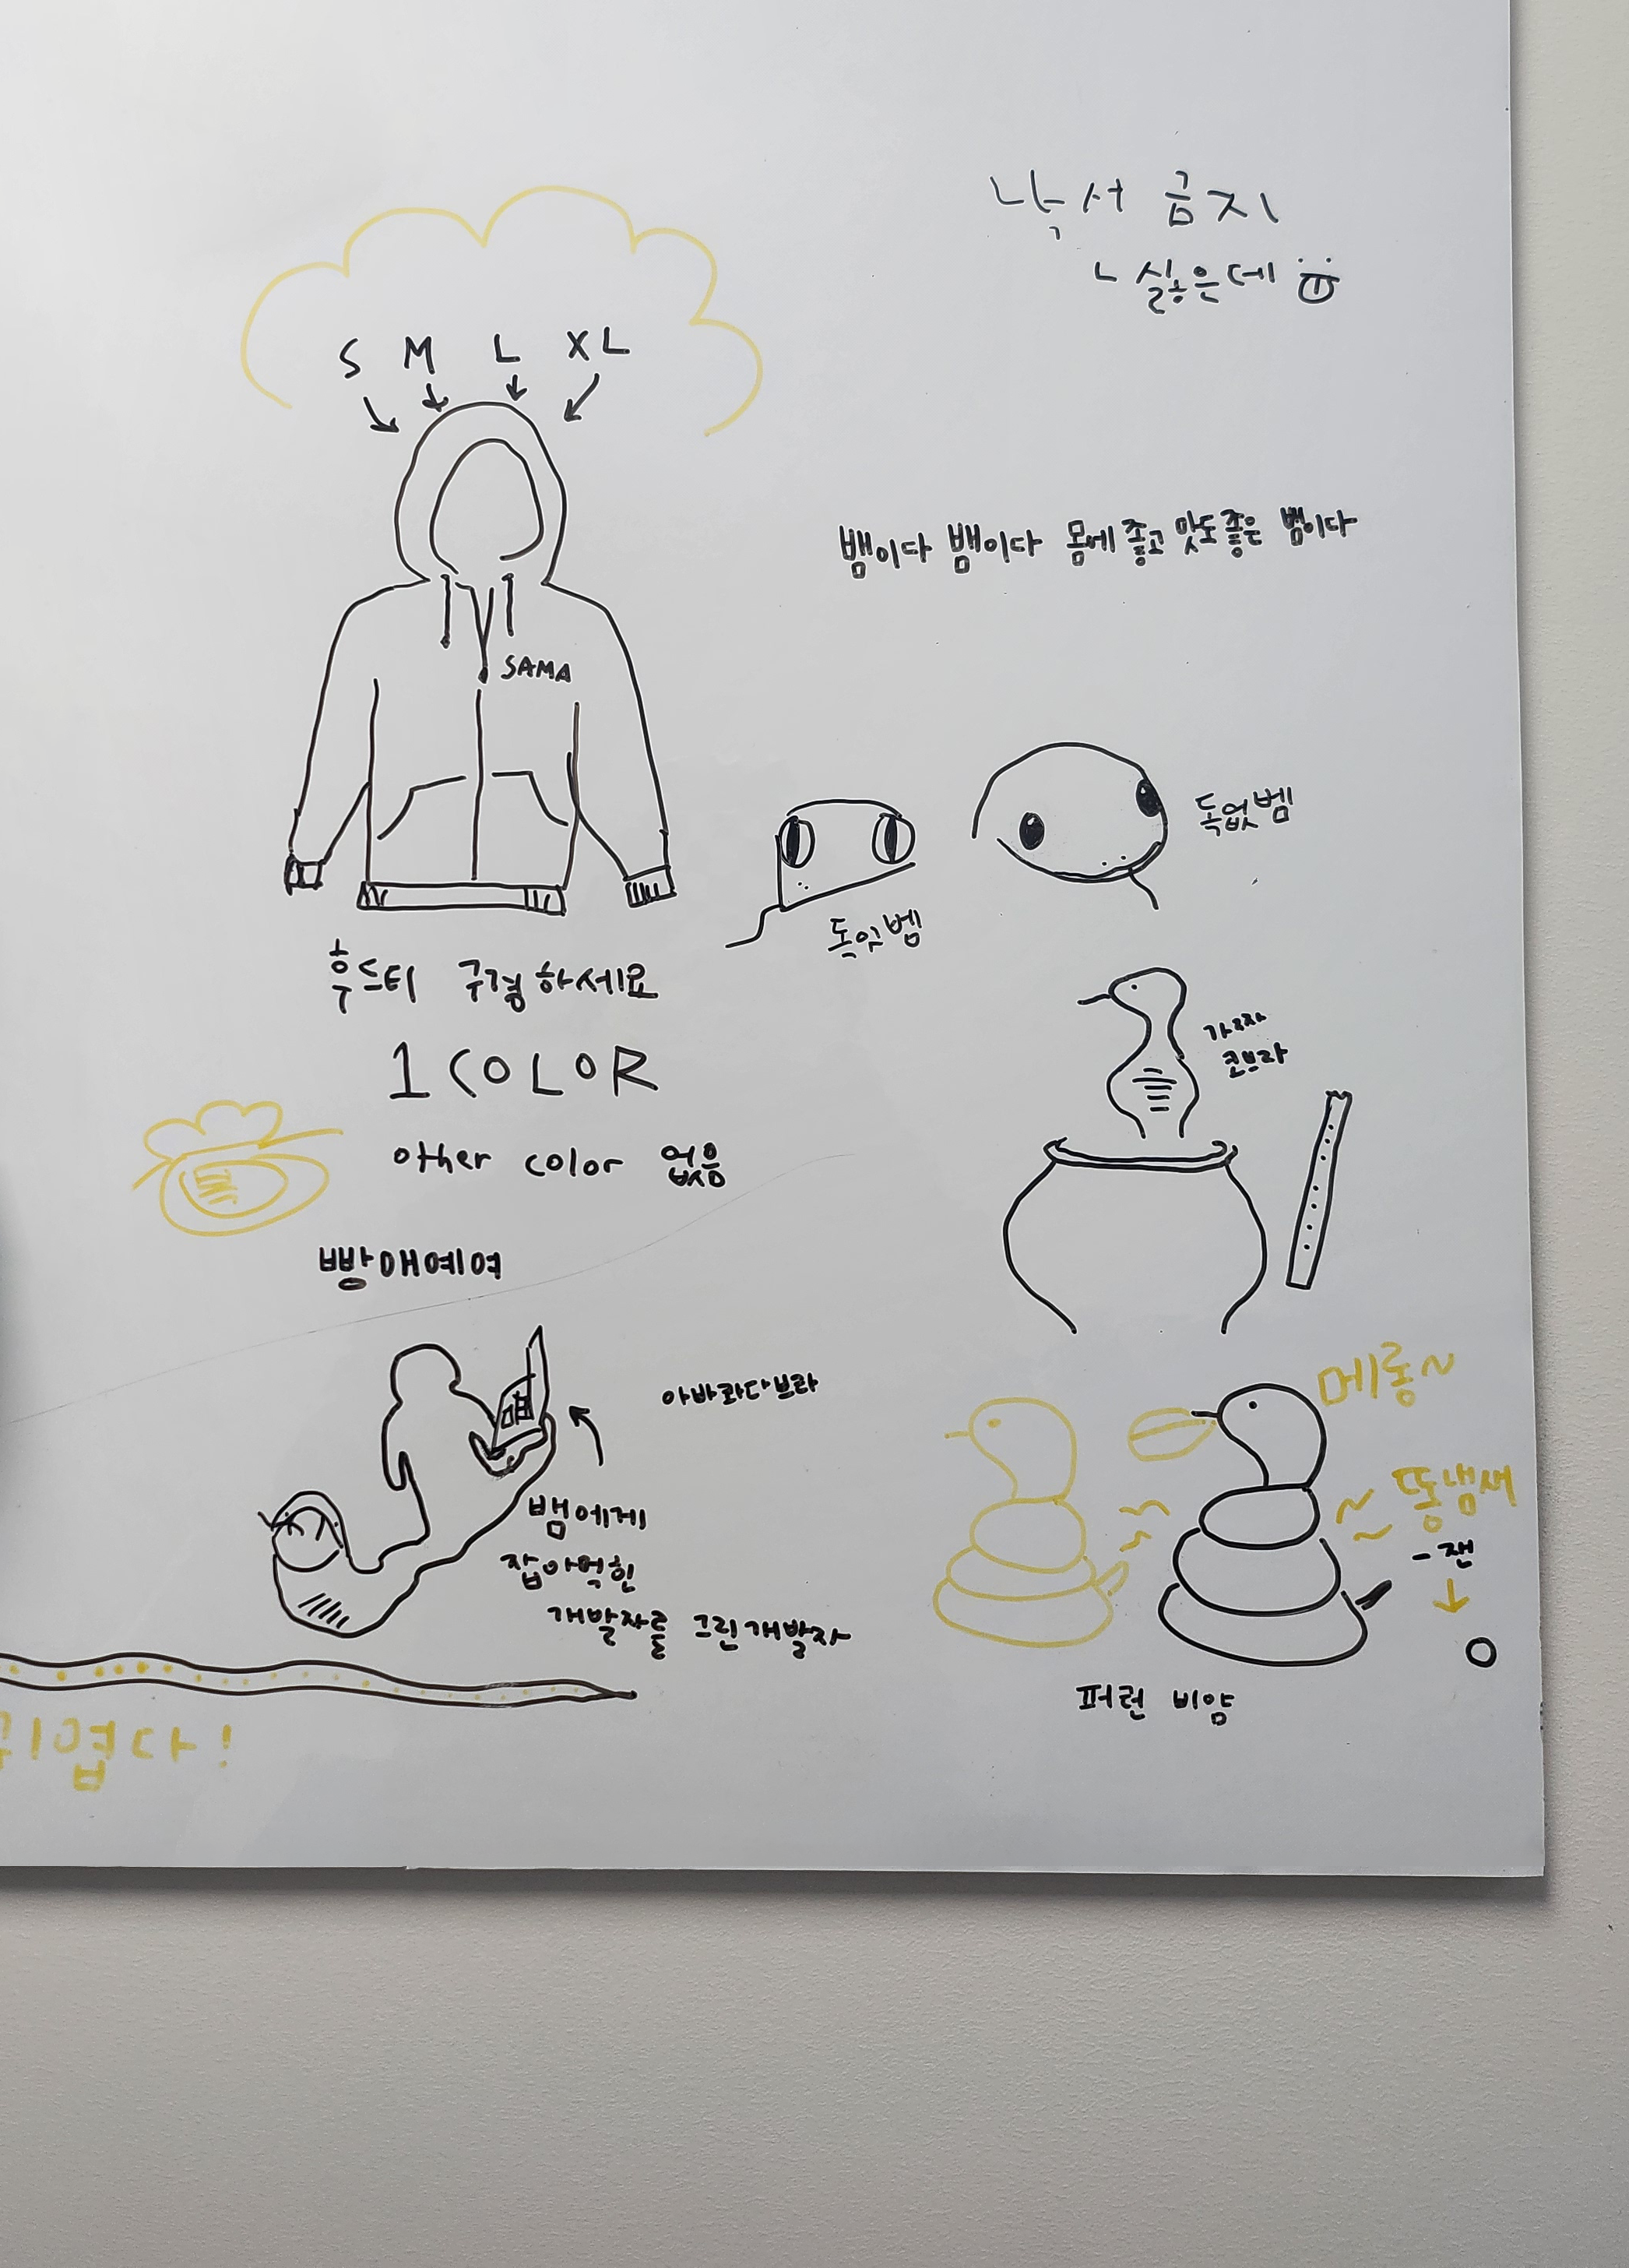 낙서 금지
ㄴ 싫은데
S M L XL
SAMA
뱀이다 뱀이다 몸에 좋고 맛도 좋은 뱀이다
독없뱀
독있뱀
후드티 구경하세요
1 COLOR
other color 없음
가르자
코브라
빵매예여
아바라다브라
뱀에게
잡아먹힌
개발자를 그린 개발자
메롱~
똥냄새
-잰
퍼런 비얌
엽다!